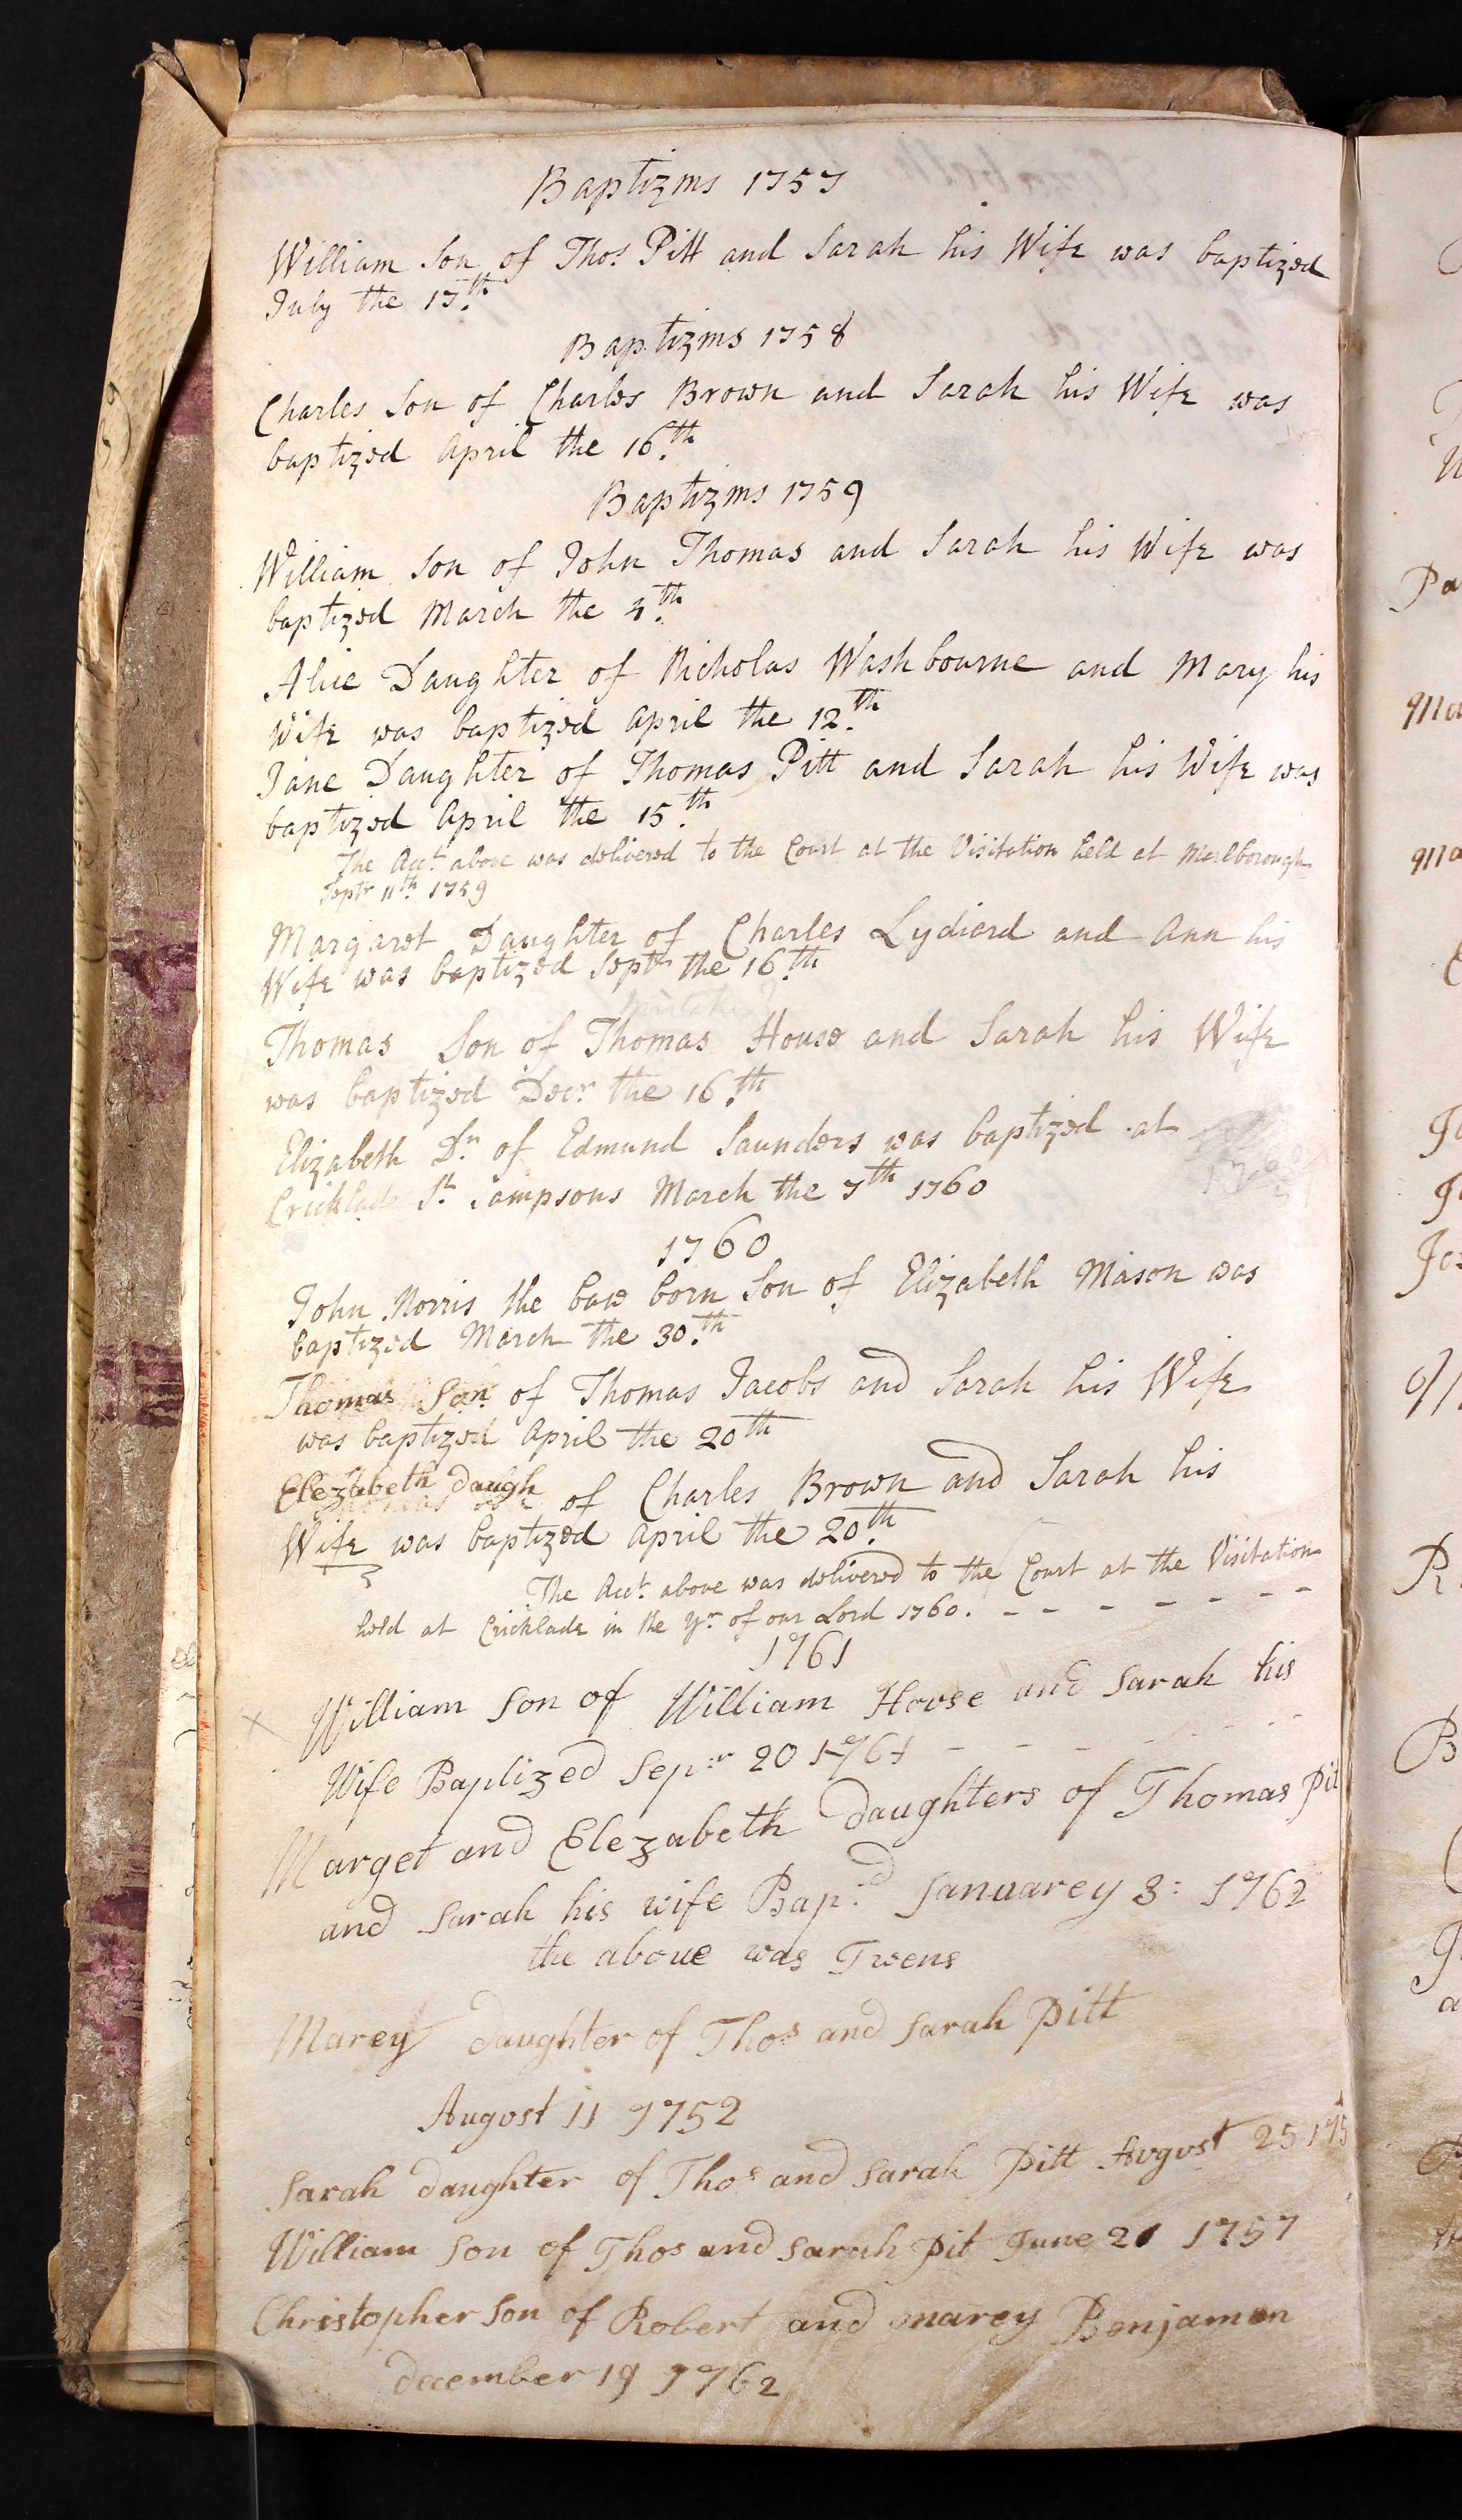 Baptizms 1757
William Son of Thos. Pitt and Sarah his Wife was baptized
July the 17.th
Baptizms 1758
Charles Son of Charles Brown and Sarah his Wife was
baptized April the 16.th
Baptizms 1759
William Son of John Thomas and Sarah his Wife was
baptized March the 4.th
Alice Daughter of Nicholas Washbourne and Mary his
Wife was baptized April the 12.th
Jane Daughter of Thomas Pitt and Sarah his Wife was
baptized April the 15.th
The Acct. above was delivered to the Court at the Visitation held at Marlborough
Septr 11th. 1759
Margaret Daughter of Charles Lydiard and Ann his
Wife was baptized Septr the 16.th
Thomas Son of Thomas House and Sarah his Wife
was baptized Decr. the 16.th
Elizabeth Dr. of Edmund Saunders was baptized at
Cricklade St. Sampsons March the 7th 1760
1760
John Norris the base born Son of Elizabeth Mason was
baptized March the 30.th
Thomas Son of Thomas Jacobs and Sarah his Wife
was baptized April the 20th
Elezabeth daugh of Charles Brown and Sarah his
Wife was baptized April the 20.th
The Acct. above was delivered to the Court at the Visitation
held at Cricklade in the Yr. of our Lord 1760. - - - - - - -
1761
x William Son of William Hovse and Sarah his
Wife Baptized Sepr 20 1761 - - - - - - -
Marget and Elezabeth daughters of Thomas Pit
and Sarah his wife Bap:d Januarey 3: 1762
the aboue was Twens
Marey daughter of Thos and Sarah Pitt
Augost 11 1752
Sarah daughter of Thos and Sarah Pitt Avgvst 25 175
William Son of Thos and Sarah Pit June 21 1757
Christopher Son of Robert and marey Benjamen
december 19 1762